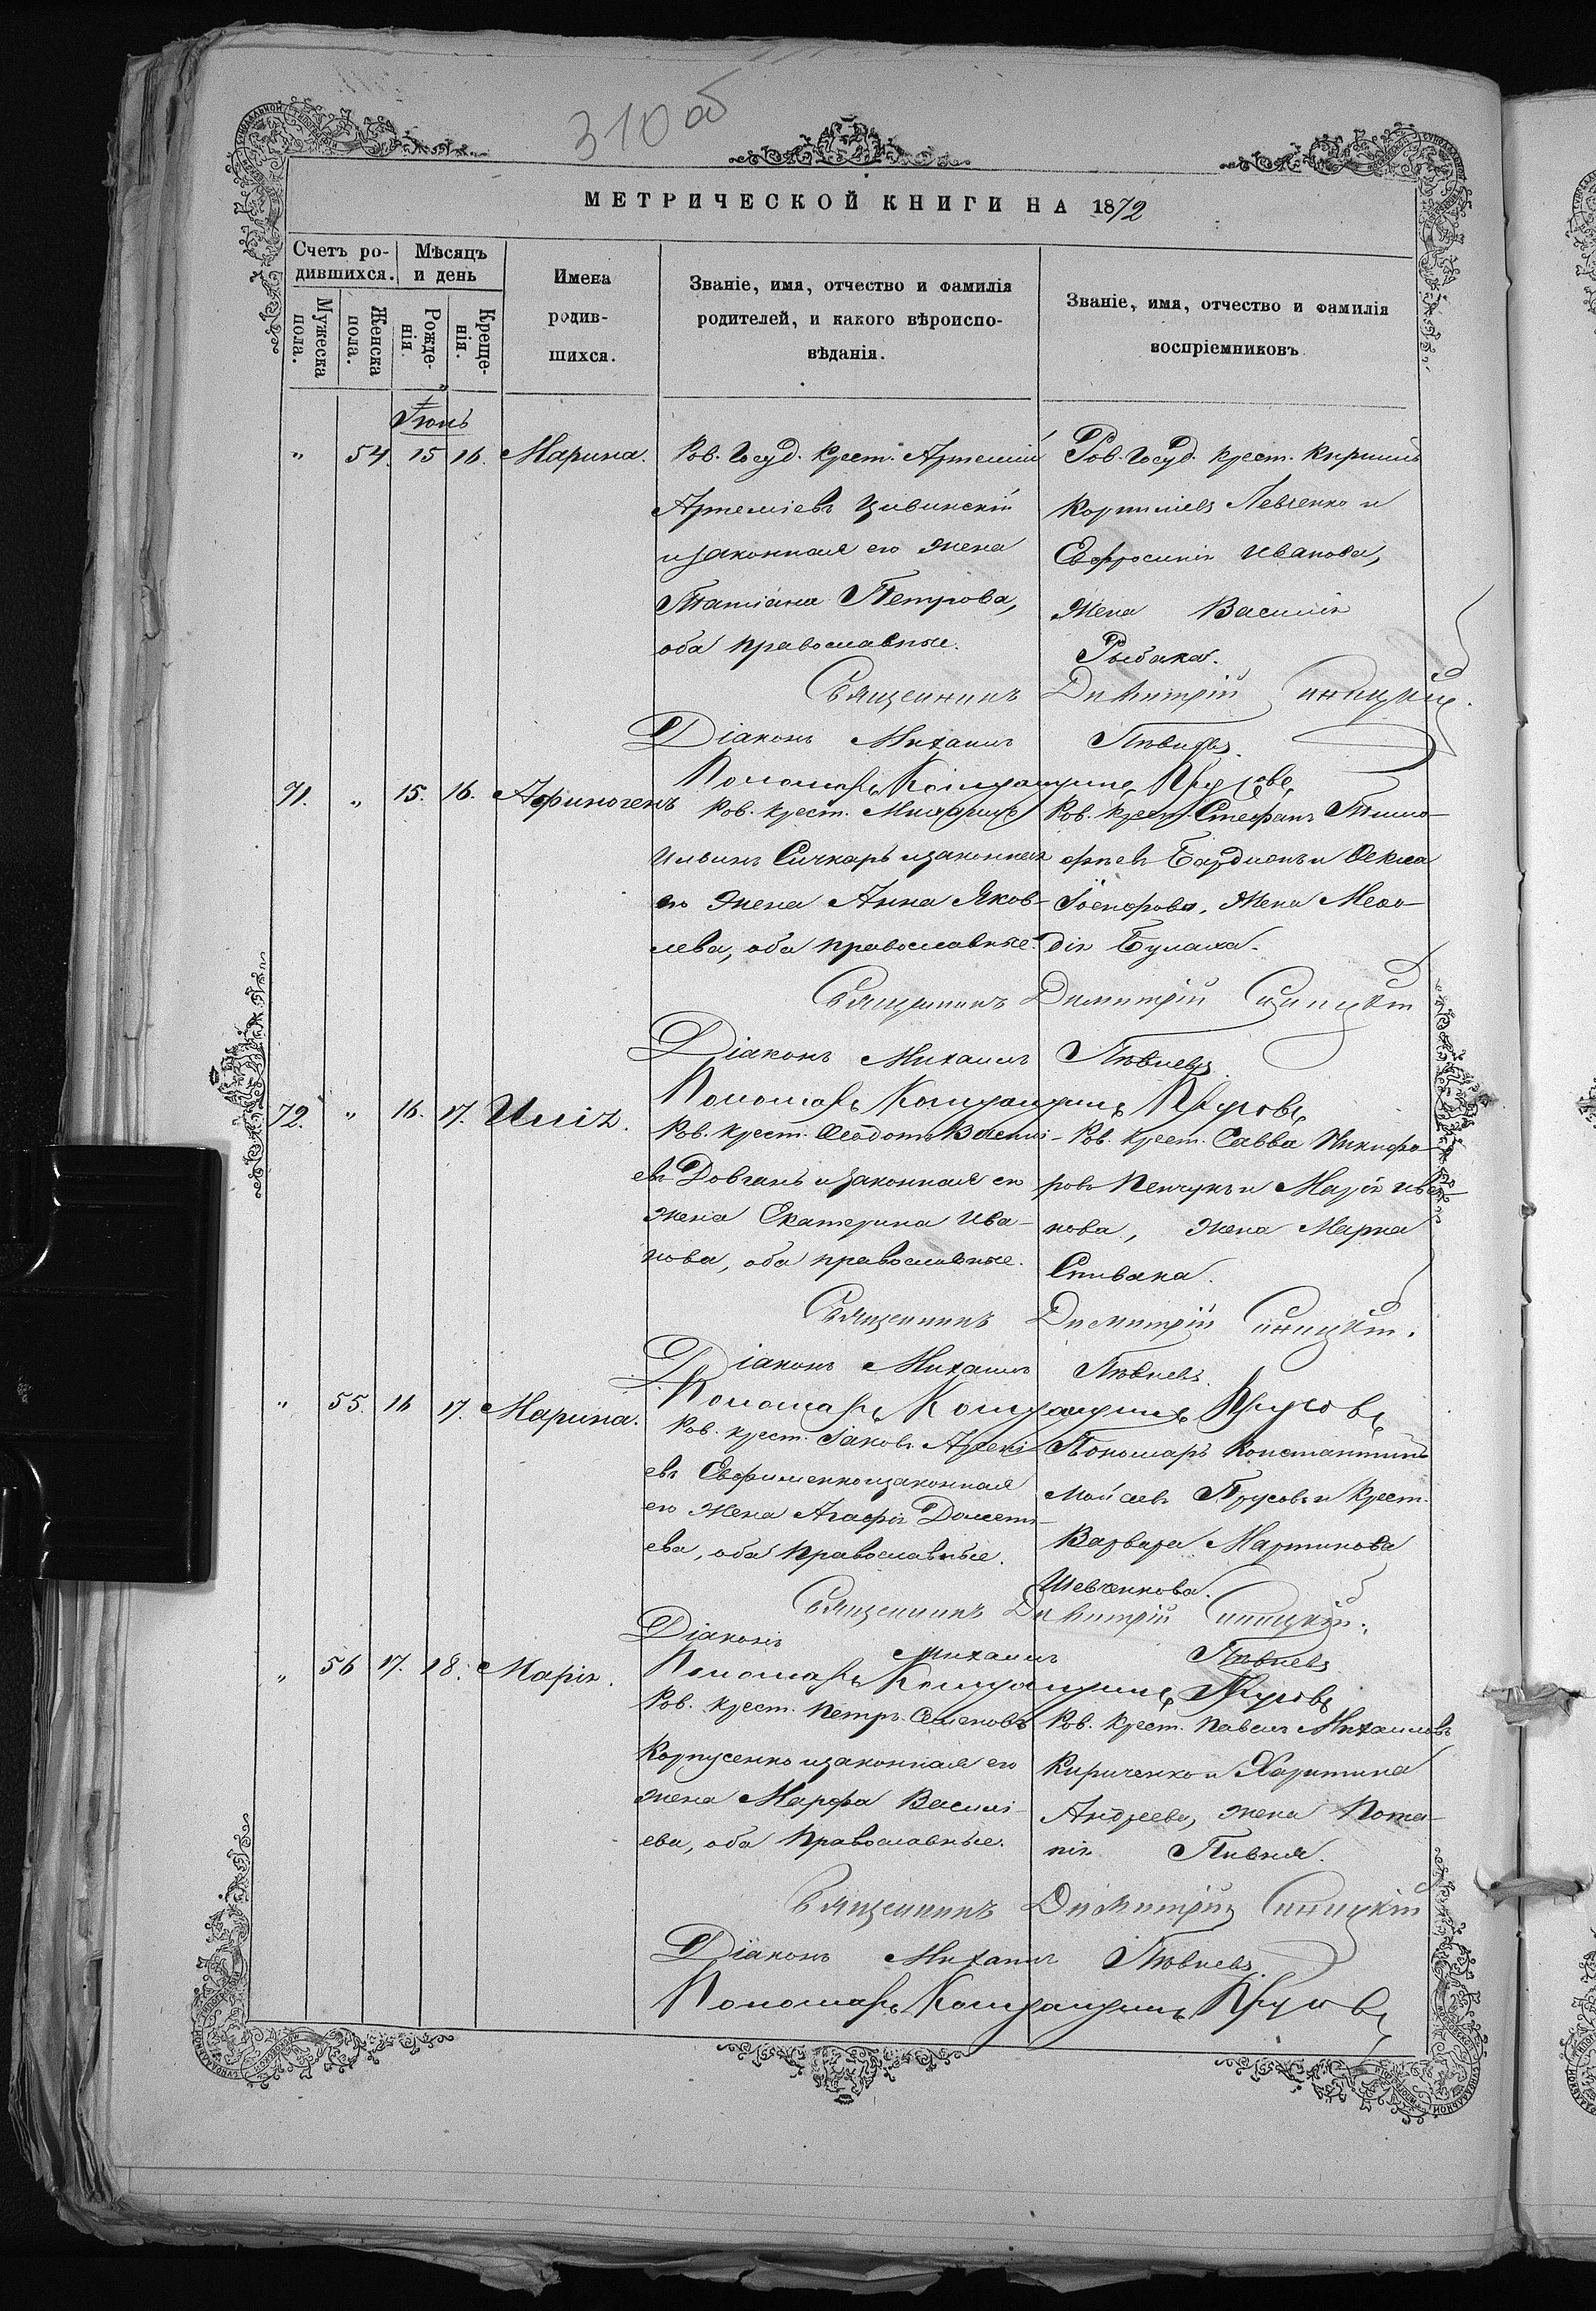 310 об
МЕТРИЧЕСКОЙ КНИГИ НА 1872
Счетъ ро-
дившихся.
Мѣсяцъ
и день
Мужеска
пола.
Женска
пола.
Рожде-
нія.
Креще-
нія.
Имена
родив-
шихся.
Званіе, имя, отчество и фамилія
родителей, и какого вѣроиспо-
вѣданія.
Званіе, имя, отчество и фамилія
воспріемниковъ
Іюль
" 54. 15 16. Марина.
Ков. Госуд. крест. Артемій
Артеміевъ Цивинскій
и законная его жена
Татіана Петрова,
оба православные.
Ков. Госуд. крест. Кирилъ
Корниліевъ Левченко и
Евфросинія Иванова,
жена Василія
Рыбака.
Священникъ Димитрій Синицкій.
Діаконъ Михаилъ Пѣвневъ.
Пономарь Константинъ Прусовъ
71. " 15. 16. Афиногенъ
Ков. крест.
Ильинъ Сичкарь и законная
его жена Анна Яков-
лева, оба православные.
Ков. крест. Стефанъ Тимо-
феевъ и Фекла
жена Мефо-
дія Булаха.
Священникъ Димитрій Синицкій
Діаконъ Михаилъ Пѣвневъ.
Пономарь Константинъ Прусовъ
72. " 16. 17. Илія.
Ков. крест. Феодотъ Василі-
евъ Довгань и законная его
жена Екатерина Ива-
нова, оба православные.
Ков. крест. Савва Никифо-
ровъ и Марія Ива-
нова, жена Марка
Спивака.
Священникъ Димитрій Синицкій.
Діаконъ Михаилъ Пѣвневъ.
Пономарь Константинъ Прусовъ
" 55. 16 17. Марина.
Ков. крест. Іаковъ Арсені-
евъ Евфименко и законная
его жена Агафія Домент-
ева, оба православные.
Пономарь Константинъ
Моисеевъ Прусовъ и крест.
Варвара Мартинова
Шевченкова.
Священникъ Димитрій Синицкій.
Діаконъ Михаилъ Пѣвневъ
Пономарь Константинъ Прусовъ
" 56 17. 18. Марія.
Ков. крест. Петръ Семеновъ
Корпусенко и законная его
жена Марфа Василі-
ева, оба православные.
Ков. крест. Павелъ Михаиловъ
Кириченко и Харитина
Андреева, жена Пота-
пія Пивня.
Священникъ Димитрій Синицкій
Діаконъ Михаилъ Пѣвневъ.
Пономарь Константинъ Прусовъ